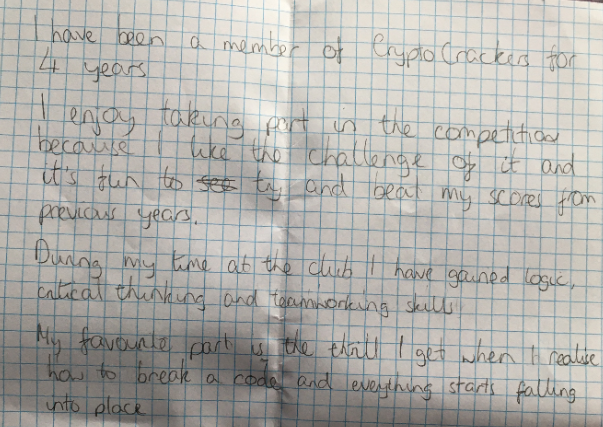 I have been a member of CryptoCrackers for
4 years
I enjoy taking part in the competition
because I like the challenge of it and
it's fun to see try and beat my scores from
previous years.
During my time at the club I have gained logic,
critical thinking and teamworking skills
My favourite part is the thrill I get when I realise
how to break a code and everything starts falling
into place